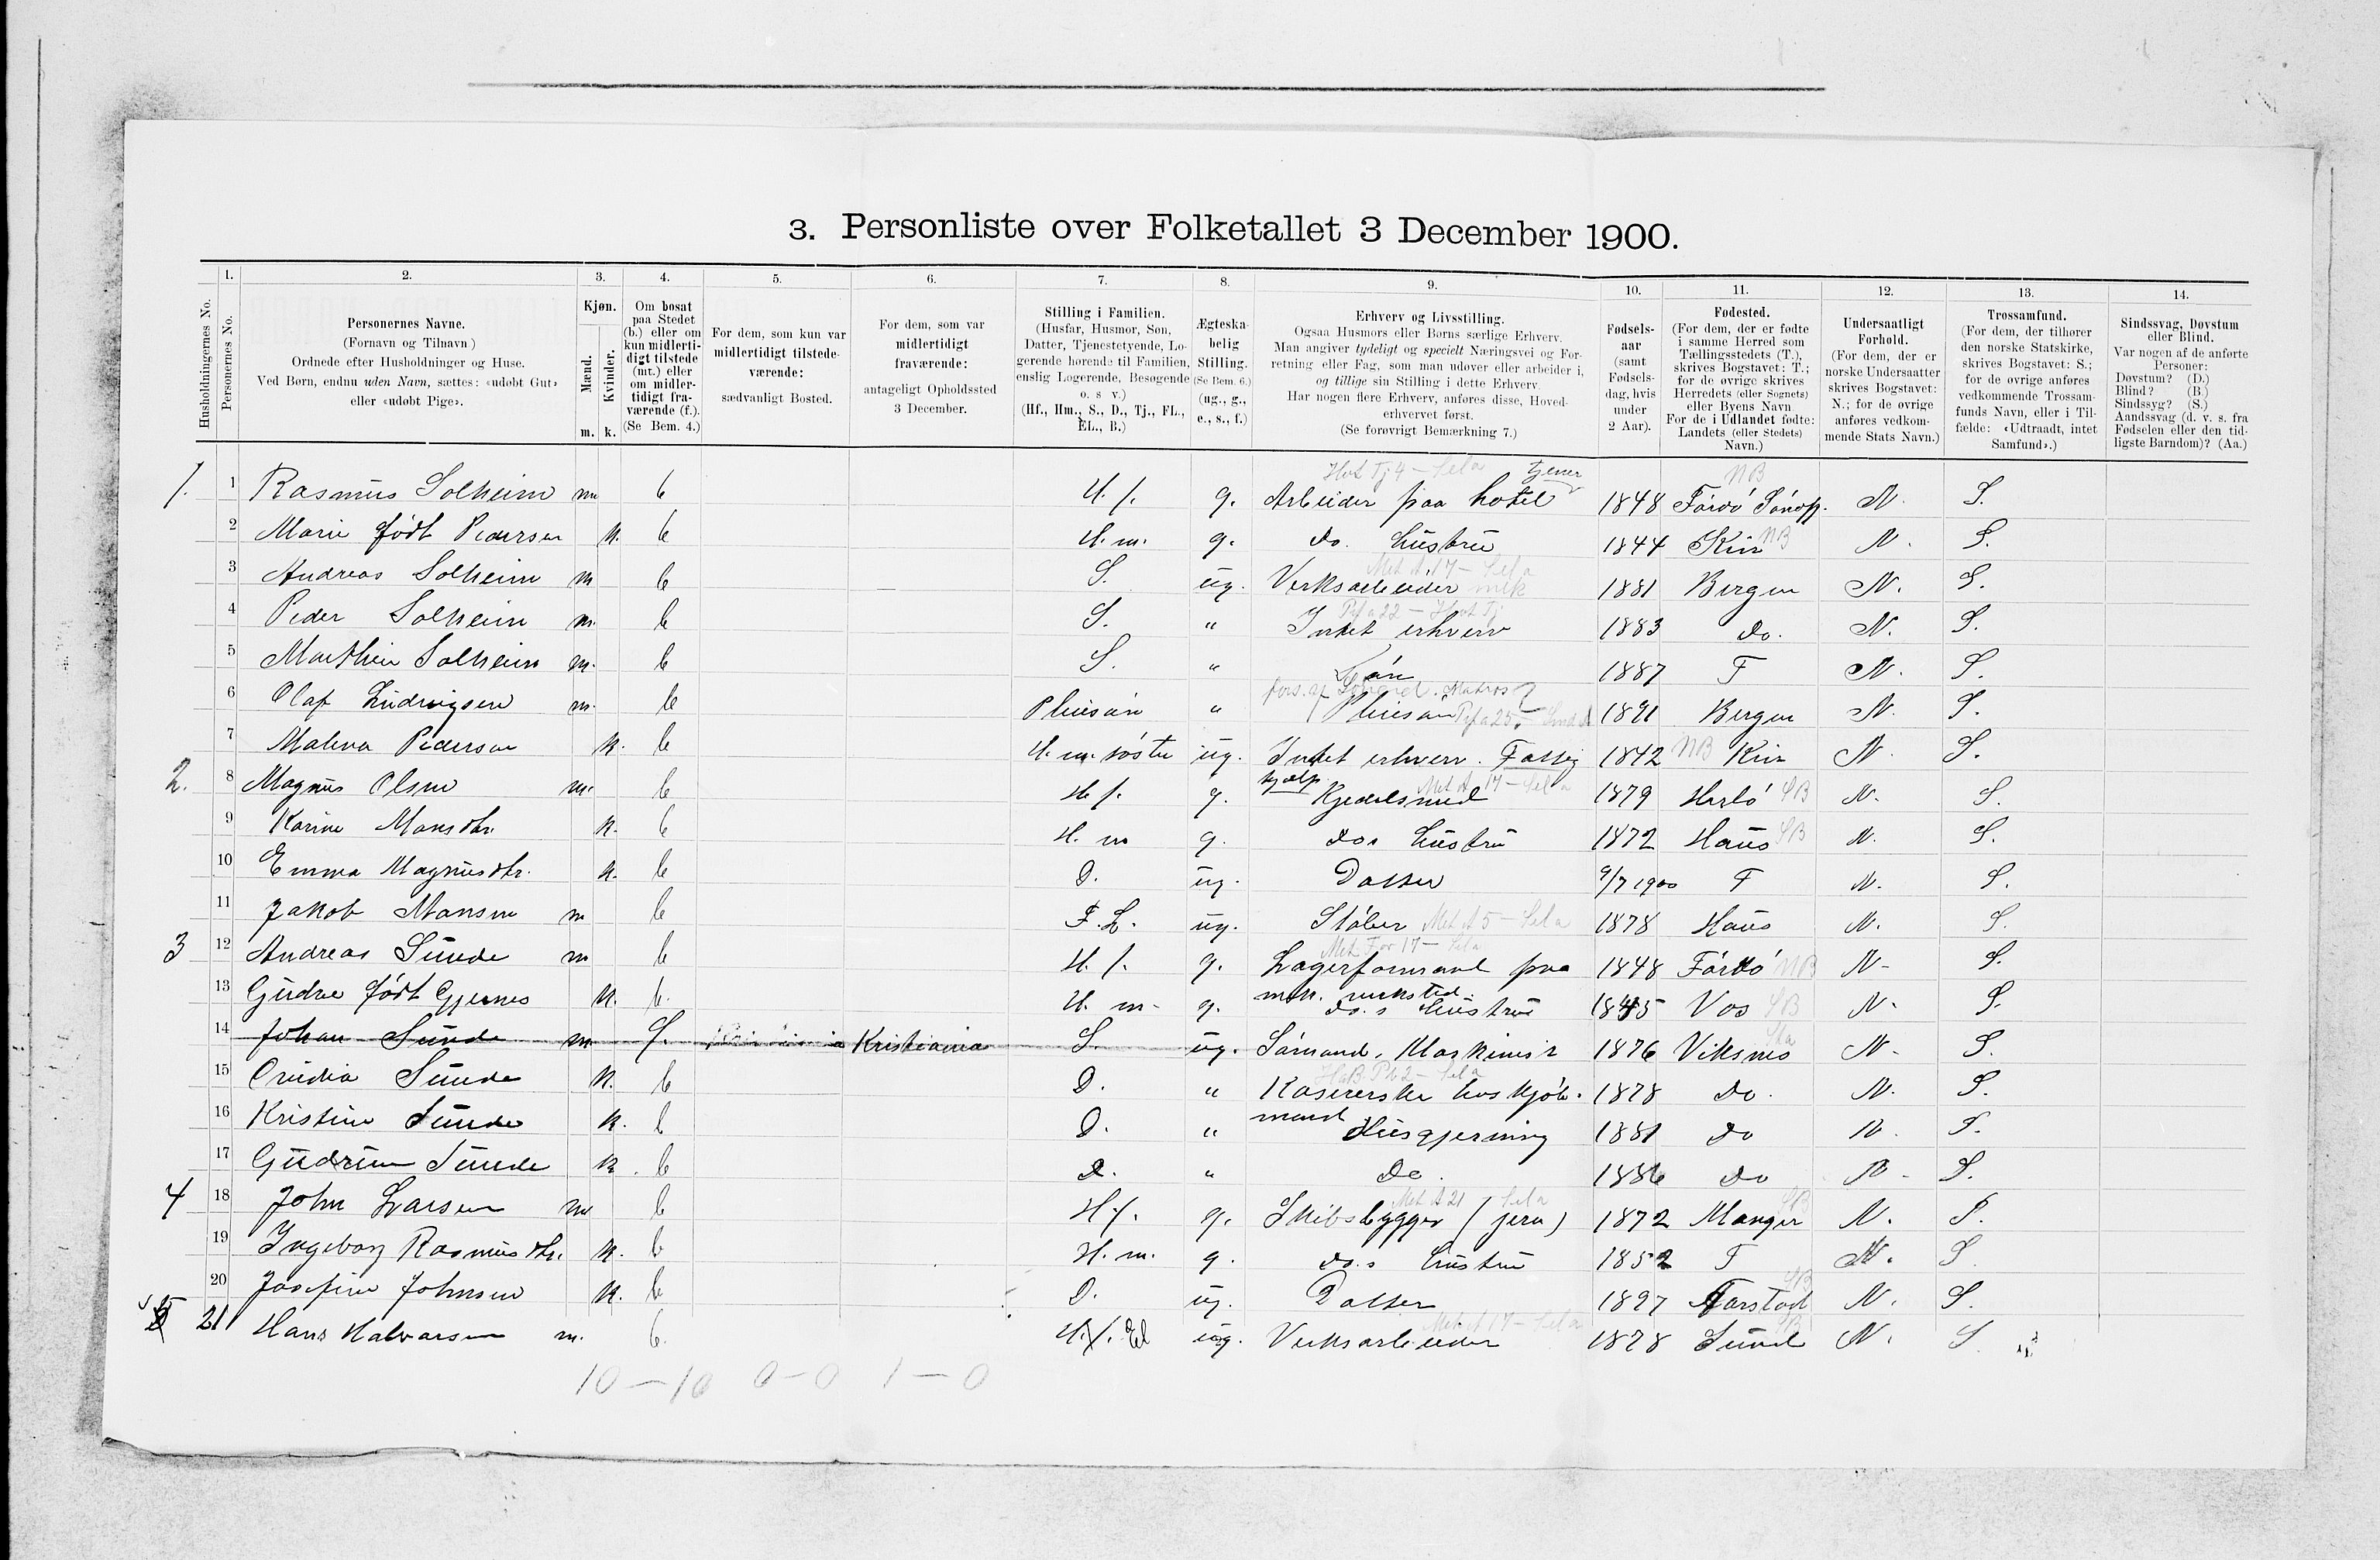 3. Personliste over Folketallet 3 December 1900.
1. 2. 3. 4. 5. 6. 7. 8. 9. 10. 11. 12. 13. 14.
Husholdningernes No.
Personernes No.
Personernes Navne.
(Fornavn og Tilnavn)
Ordnede efter Husholdninger og Huse.
Ved Børn, endnu uden Navn, sættes: «udøbt Gut»
eller «udøbt Pige».
Kjøn.
Mænd. Kvinder.
m. k.
Om bosat
paa Stedet
(b.) eller om
kun midlerti-
digt tilstede
(mt.) eller
om midler-
tidigt fra-
værende (f.).
(Se Bem. 4.)
For dem, som kun var
midlertidigt tilstede-
værende:
sædvanligt Bosted.
For dem, som var
midlertidigt
fraværende:
antageligt Opholdssted
3 December.
Stilling i Familien.
(Husfar, Husmor, Søn,
Datter, Tjenestetyende, Lo-
gerende hørende til Familien,
enslig Logerende, Besøgende
o. s. v.)
(Hf., Hm., S., D., Tj., FL.,
EL., B.)
Ægteska-
belig
Stilling.
(Se Bem. 6.)
(ug., g.,
e., s., f.)
Erhverv og Livsstilling.
Ogsaa Husmors eller Børns særlige Erhverv.
Man angiver tydeligt og specielt Næringsvei og For-
retning eller Fag, som man udøver eller arbeider i,
og tillige sin Stilling i dette Erhverv.
Har nogen flere Erhverv, anføres disse, Hoved-
erhvervet først.
(Se forøvrigt Bemærkning 7.)
Fødsels-
aar
(samt
Fødsels-
dag, hvis
under
2 Aar).
Fødested.
(For dem, der er fødte
i samme Herred som
Tællingsstedets (T.),
skrives Bogstavet: T.;
for de øvrige skrives
Herredets (eller Sognets)
eller Byens Navn
For de i Udlandet fødte:
Landets (eller Stedets)
Navn.)
Undersaatligt
Forhold.
(For dem, der er
norske Undersaatter
skrives Bogstavet:
N.; for de øvrige
anføres vedkom-
mende Stats Navn.)
Trossamfund.
(For dem, der tilhører
den norske Statskirke,
skrives Bogstavet: S.;
for de øvrige anføres
vedkommende Trossam-
funds Navn, eller i Til-
fælde: «Udtraadt, intet
Samfund».)
Sindssvag, Døvstum
eller Blind.
Var nogen af de anførte
Personer:
Døvstum? (D.)
Blind? (B.)
Sindssyg? (S.)
Aandssvag (d. v. s. fra
Fødselen eller den tid-
ligste Barndom)? (Aa.)
Hot Tj 4 - Sela tjener NB
1. 1 Rasmus Solheim m b H.f. g. Arbeider paa hotel 1848 N. S.
2 Marie født Pedersen k. b H.m. g. do. hustru 1844 Kin NB N. S.
Met A 17 - Sela
3 Andreas Solheim m b S. ug. Verksarbeider mek 1881 Bergen N. S.
4 Peder Solheim m. b S. " Intet erhverv 1883 do. N. S.
5 Mathias Solheim m. b S. " Søn 1887 T N. S.
6 Olaf Ludvigsen m. b Pleiesøn " Pleiesøn 1891 Bergen N. S.
7 Malena Pedersen k. b H.m. søster ug. Intet erhverv. Fattig 1842 NB Kin N. S.
hjælp Met A 17 - Sela
2. 8 Magnus Olsen m. b H.f. g. Kjedelsmed 1879 Herlø SB N. S.
9 Karine Mansdtr. k. b H.m g. do's hustru 1872 Haus SB N. S.
10 Emma Magnusdtr. k. b D. ug. Datter 9/7 1900 T N. S.
11 Jakob Mansen m b F.L. ug. Støber Met A 5 - Sela 1878 Haus N. S.
Met For 17 - Sela
3 12 Andreas Sunde m b H.f. g. Lagerformand paa 1848 NB N- S.
mek. verksted.
13 født Gjernes k. b. H.m- g. do.s hustru 1845 Vos SB N- S.
14 Johan Sunde m f. Kristiania S. ug. Sømand, Maskinist 1876 Viksnes N- S.
15 Ovidia Sunde k. b D. " Kasererske hos kjøb- 1878 do. N. S.
mand
16 Kristine Sunde k. b D. " Husgjerning 1881 do N. S.
17 Gudrun Sunde k. b D. " Do. 1886 do N- S.
Met A 21 Sela SB
4 18 John Larsen m b H.f. g. Skibsbygger (jern) 1872 Manger N. S.
19 Ingeborg Rasmusdtr. k. b H.m. g. do.s hustru 1852 T N. S
20 Josefine Johnsen k. b D. ug. Datter 1897 N. S.
Met A 17 - Sela
5 21 Hans Halvorsen m. b. H.f. El ug. Verksarbeider 1878 Sund N. S
10 - 10 0 - 0 1 - 0